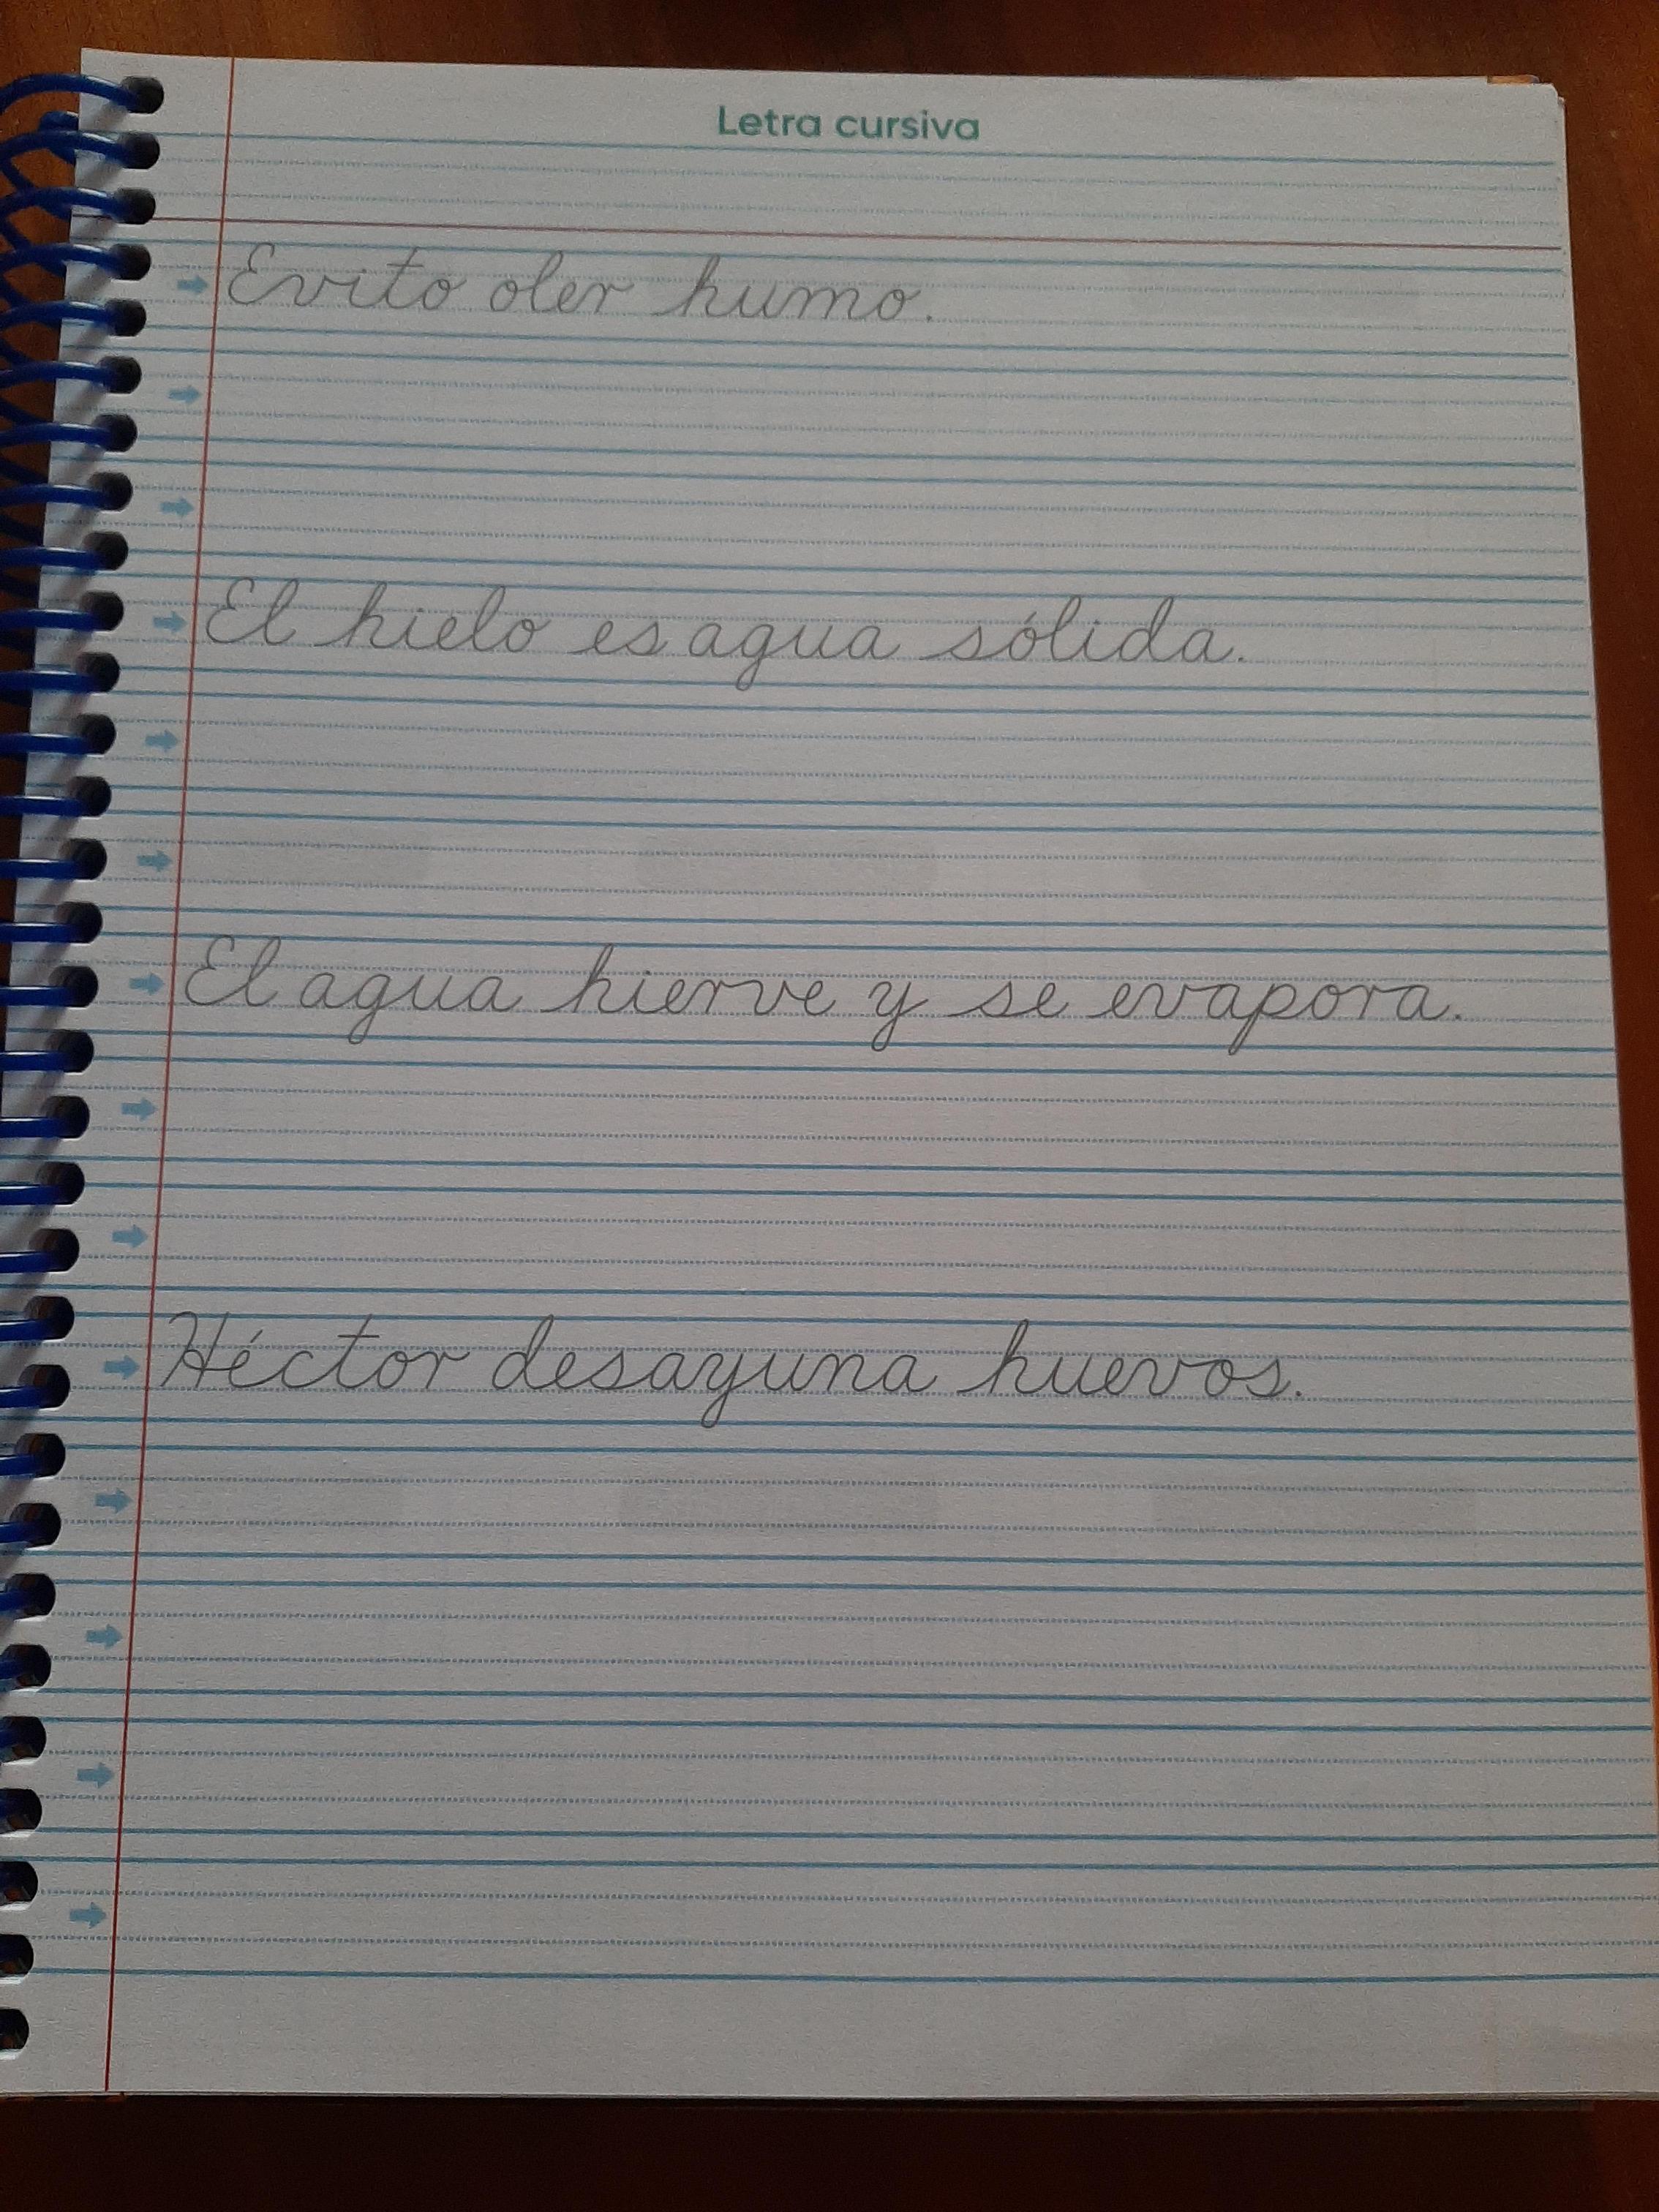 Letra cursiva
Evito oler humo.
El hielo es agua sólida.
El agua hierve y se evapora.
Héctor desayuna huevos.